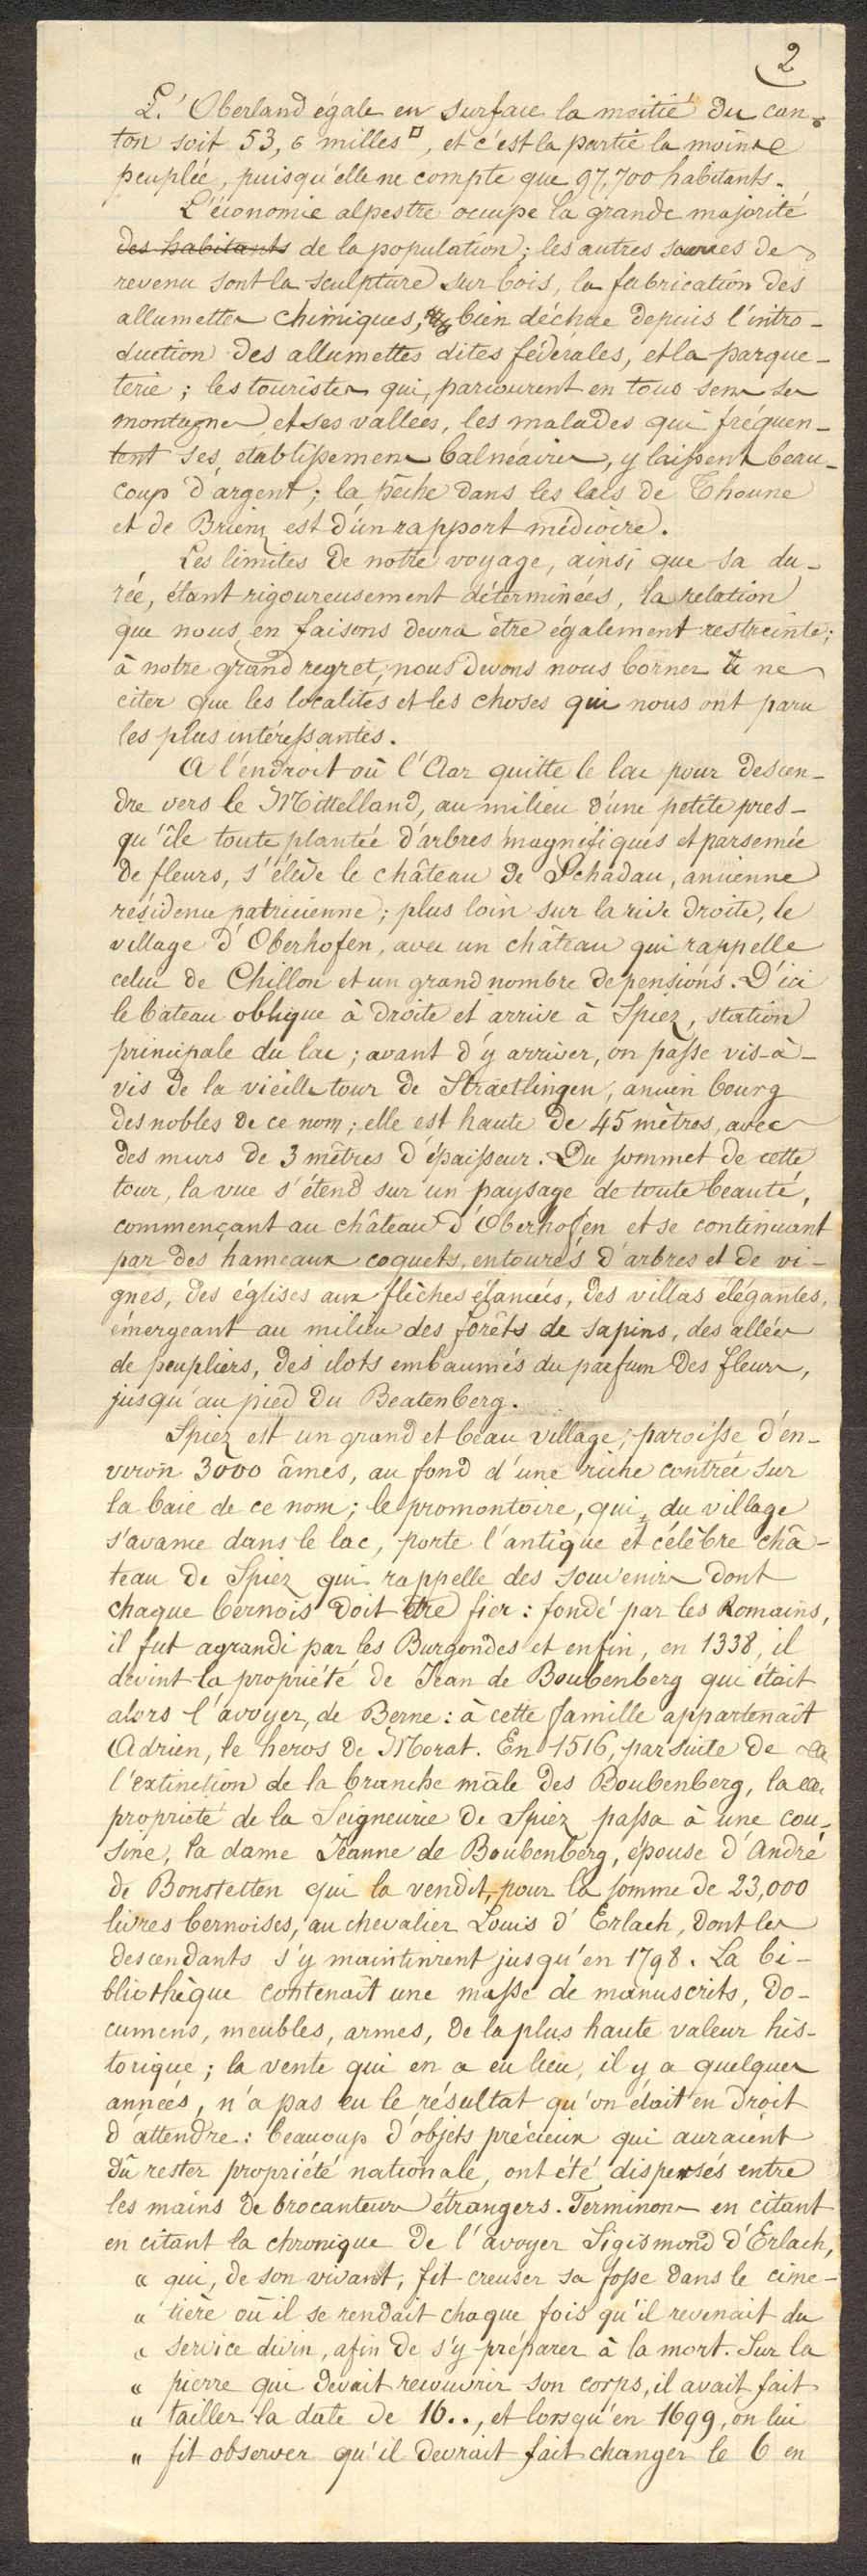 2
L'Oberland égale en surface la moitié du can-
ton soit 53,6 milles □, et c'est la partie la moins
peuplée, puisqu'elle ne compte que 97,700 habitants.
L'économie alpestre occupe la grande majorité
des habitants de la population; les autres sources de
revenu sont la sculpture sur bois, la fabrication des
allumettes chimiques, bien déchue depuis l'intro-
duction des allumettes dites fédérales, et la parque-
terie; les touristes qui, parcourent en tous sens ses
montagnes et ses vallées, les malades qui fréquen-
tent ses établissemens balnéaires, y laissent beau-
coup d'argent; la pêche dans les lacs de Thoune
et de Brienz est d'un rapport médiocre.
Les limites de notre voyage, ainsi que sa du-
rée, étant rigoureusement déterminées, la relation
que nous en faisons devra être également restreinte;
à notre grand regret, nous devons nous borner à ne
citer que les localités et les choses qui nous ont paru
les plus intéressantes.
A l'endroit où l'Aar quitte le lac pour descen-
dre vers le Mittelland, au milieu d'une petite pres-
qu'île toute plantée d'arbres magnifiques et parsemée
de fleurs, s'élève le château de Schadau, ancienne
résidence patricienne; plus loin sur la rive droite, le
village d'Oberhofen, avec un château qui rappelle
celui de Chillon et un grand nombre de pensions. D'ici
le bateau oblique à droite et arrive à Spiez, station
principale du lac; avant d'y arriver, on passe vis-à-
vis de la vieille tour de Straetlingen, ancien bourg
des nobles de ce nom; elle est haute de 45 mètres, avec
des murs de 3 mètres d'épaisseur. Du sommet de cette
tour, la vue s'étend sur un paysage de toute beauté,
commençant au château d'Oberhofen et se continuant
par des hameaux coquets, entourés d'arbres et de vi-
gnes, des églises aux flèches élancées, des villas élégantes,
émergeant au milieu des forêts de sapins, des allées
de peupliers, des ilots embaumés du parfum des fleurs,
jusqu'au pied du Beatenberg.
Spiez est un grand et beau village, paroisse d'en-
viron 3000 âmes, au fond d'une riche contrée sur
la baie de ce nom; le promontoire, qui, du village
s'avance dans le lac, porte l'antique et célèbre châ-
teau de Spiez qui rappelle des souvenirs dont
chaque bernois doit être fier: fondé par les Romains,
il fut agrandi par les Burgondes et enfin, en 1338, il
devint la propriété de Jean de Boubenberg qui était
alors l'avoyer, de Berne: à cette famille appartenait
Adrien, le heros de Morat. En 1516, par suite de la
l'extinction de la branche mâle des Boubenberg, la
propriété de la Seigneurie de Spiez passa à une cou-
sine, la dame Jeanne de Boubenberg, épouse d'André
de Bonstetten qui la vendit, pour la somme de 23,000
livres bernoises, au chevalier Louis d'Erlach, dont les
descendants s'y maintinrent jusqu'en 1798. La bi-
bliothèque contenait une masse de manuscrits, do-
cumens, meubles, armes, de la plus haute valeur his-
torique; la vente qui en a eu lieu, il y a quelques
années, n'a pas eu le résultat qu'on était en droit
d'attendre: beaucoup d'objets précieux qui auraient
dû rester propriété nationale, ont été dispersés entre
les mains de brocanteurs étrangers. Terminons en citant
en citant la chronique de l'avoyer Sigismond d'Erlach,
« qui, de son vivant, fit creuser sa fosse dans le cime-
« tière où il se rendait chaque fois qu'il revenait du
« service divin, afin de s'y préparer à la mort. Sur la
« pierre qui devait recouvrir son corps, il avait fait
« tailler la date de 16.., et lorsqu'en 1699, on lui
« fit observer qu'il devrait fait changer le 6 en